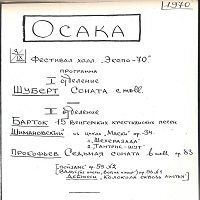 1970
ОСАКА
9/IX
Фестивал холл "Экспо-70"
программа
I отделение
ШУБЕРТ Соната c moll.
II отделение
БАРТОК 15 венгерских крестьянских песен
ШИМАНОВСКИЙ из цикла „Маски" op. 34.
„Шехеразада"
2. „Тантрис-шут"
ПРОКОФЬЕВ Седьмая соната B moll op. 83
ДЕБЮССИ „Колокола сквозь листья"